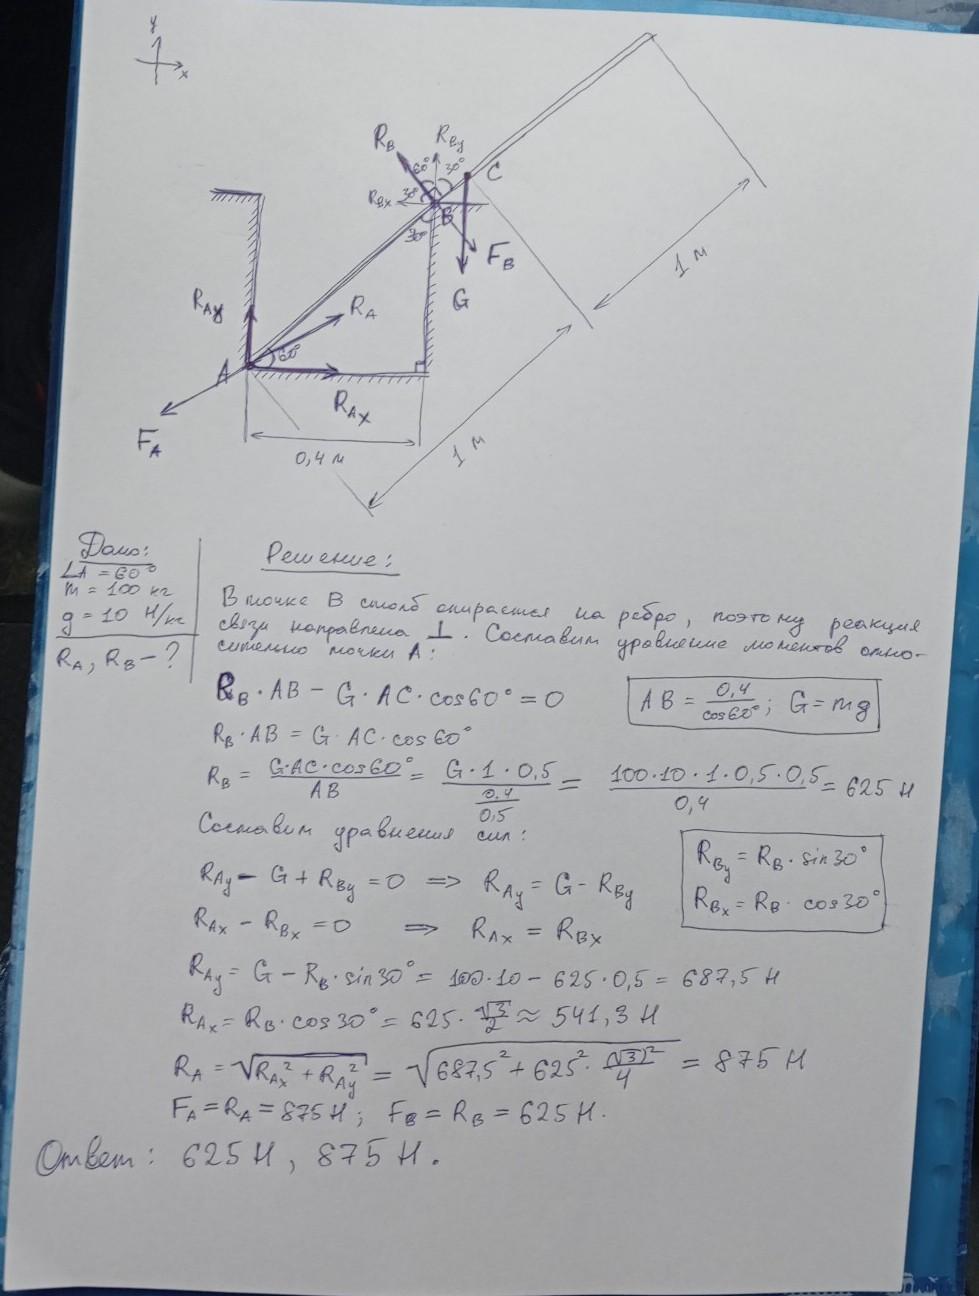 y
x
R_B
R_By
60°
30°
C
R_Bx
30°
B
30°
F_B
G
1 м
R_Ay
R_A
60°
A
R_Ax
F_A
0,4 м
1 м
Дано:
∠A = 60°
m = 100 кг
g = 10 Н/кг
R_A, R_B - ?
Решение:
В точке В столб опирается на ребро, поэтому реакция
связи направлена ⊥. Составим уравнение моментов отно-
сительно точки А:
R_B · AB - G · AC · cos60° = 0
AB = 0,4/cos60°; G = mg
R_B · AB = G · AC · cos60°
R_B = G·AC·cos60°/AB = G·1·0,5/(0,4/0,5) = 100·10·1·0,5·0,5/0,4 = 625 Н
Составим уравнения сил:
R_Ay - G + R_By = 0 => R_Ay = G - R_By
R_By = R_B · sin30°
R_Ax - R_Bx = 0 => R_Ax = R_Bx
R_Bx = R_B · cos30°
R_Ay = G - R_B · sin30° = 100·10 - 625·0,5 = 687,5 Н
R_Ax = R_B · cos30° = 625 · √3/2 ≈ 541,3 Н
R_A = √(R_Ax² + R_Ay²) = √(687,5² + 625² · (√3)²/4) = 875 Н
F_A = R_A = 875 Н; F_B = R_B = 625 Н.
Ответ: 625 Н, 875 Н.